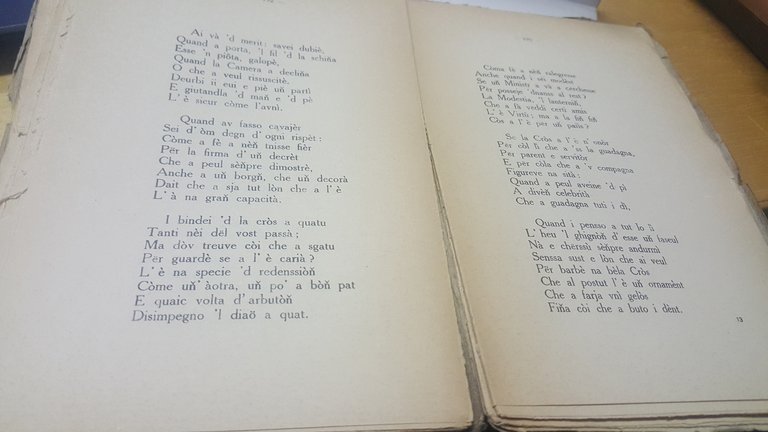 Ai và 'd merit: savei dubiè,
Quand a porta, 'l fil 'd la schiña
Esse 'n piòta, galupè,
Quand la Camera a declina
O che a veul rissuscitè.
Deurbi ii eui e piè uñ partì
E giutandla 'd mañ e 'd pè
L' è sicur còme l'avnì.
Quand av fasso cavajèr
Sei d' òm degn d' ogni rispèt:
Còme a fè a nèñ tnisse fièr
Për la firma d' uñ decrèt
Che a peul sèñpre dimostrè,
Anche a uñ borgñ, che uñ decorà
Dait che a sja tut lòn che a l' è
L' à na grañ capacità.
I bindei 'd la cròs a quatu
Tanti nèi dël vost passà;
Ma dòv treuve còi che a sgatu
Për guardè se a l' è carià?
L' è na specie 'd redenssiòñ
Còme uñ' àotra, uñ po' a bòñ pat
E quaic volta d' arbutòñ
Disimpegno 'l diaô a quat.
Còma fè a nèñ ralegresse
Anche quand i sei modèst
Se uñ Ministr a và a cerchesse
Për posseje 'dnanss al rest?
La Modestia, 'l lanterniñ,
Che a fà veddi certi amis
L' è Virtù; ma a la fiñ fiñ
Còs a l' è për uñ païis?
Se la Cròs a l' è n' onòr
Për còl lì che a 'ss la guadagna,
Për parent e servitòr
E për còla che a 'v compagna
Figureve na sità:
Quand a peul aveine 'd pì
A divèñ celebrità
Che a guadagna tuti i dì.
Quand i pensso a tut lo lì
L' heu 'l ghignòñ d' esse uñ baseul
Nà e chërssù sèñpre andurmì
Senssa sust e lòn che ai veul
Për barbè na bèla Cròs
Che al postut l' è uñ ornamènt
Che a farja vnì gelòs
Fiña còi che a buto i dènt.
13